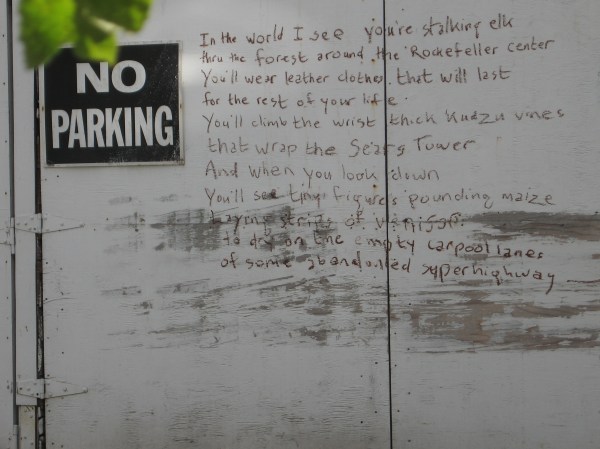 NO
PARKING
In the world I see you're stalking elk
thru the forest around the Rockefeller Center
You'll wear leather clothes that will last
for the rest of your life.
You'll climb the wrist thick kudzu vines
that wrap the Sears Tower
And when you look down
You'll see tiny figures pounding maize
Laying strips of venison
to dry on the empty carpool lanes
of some abandoned superhighway